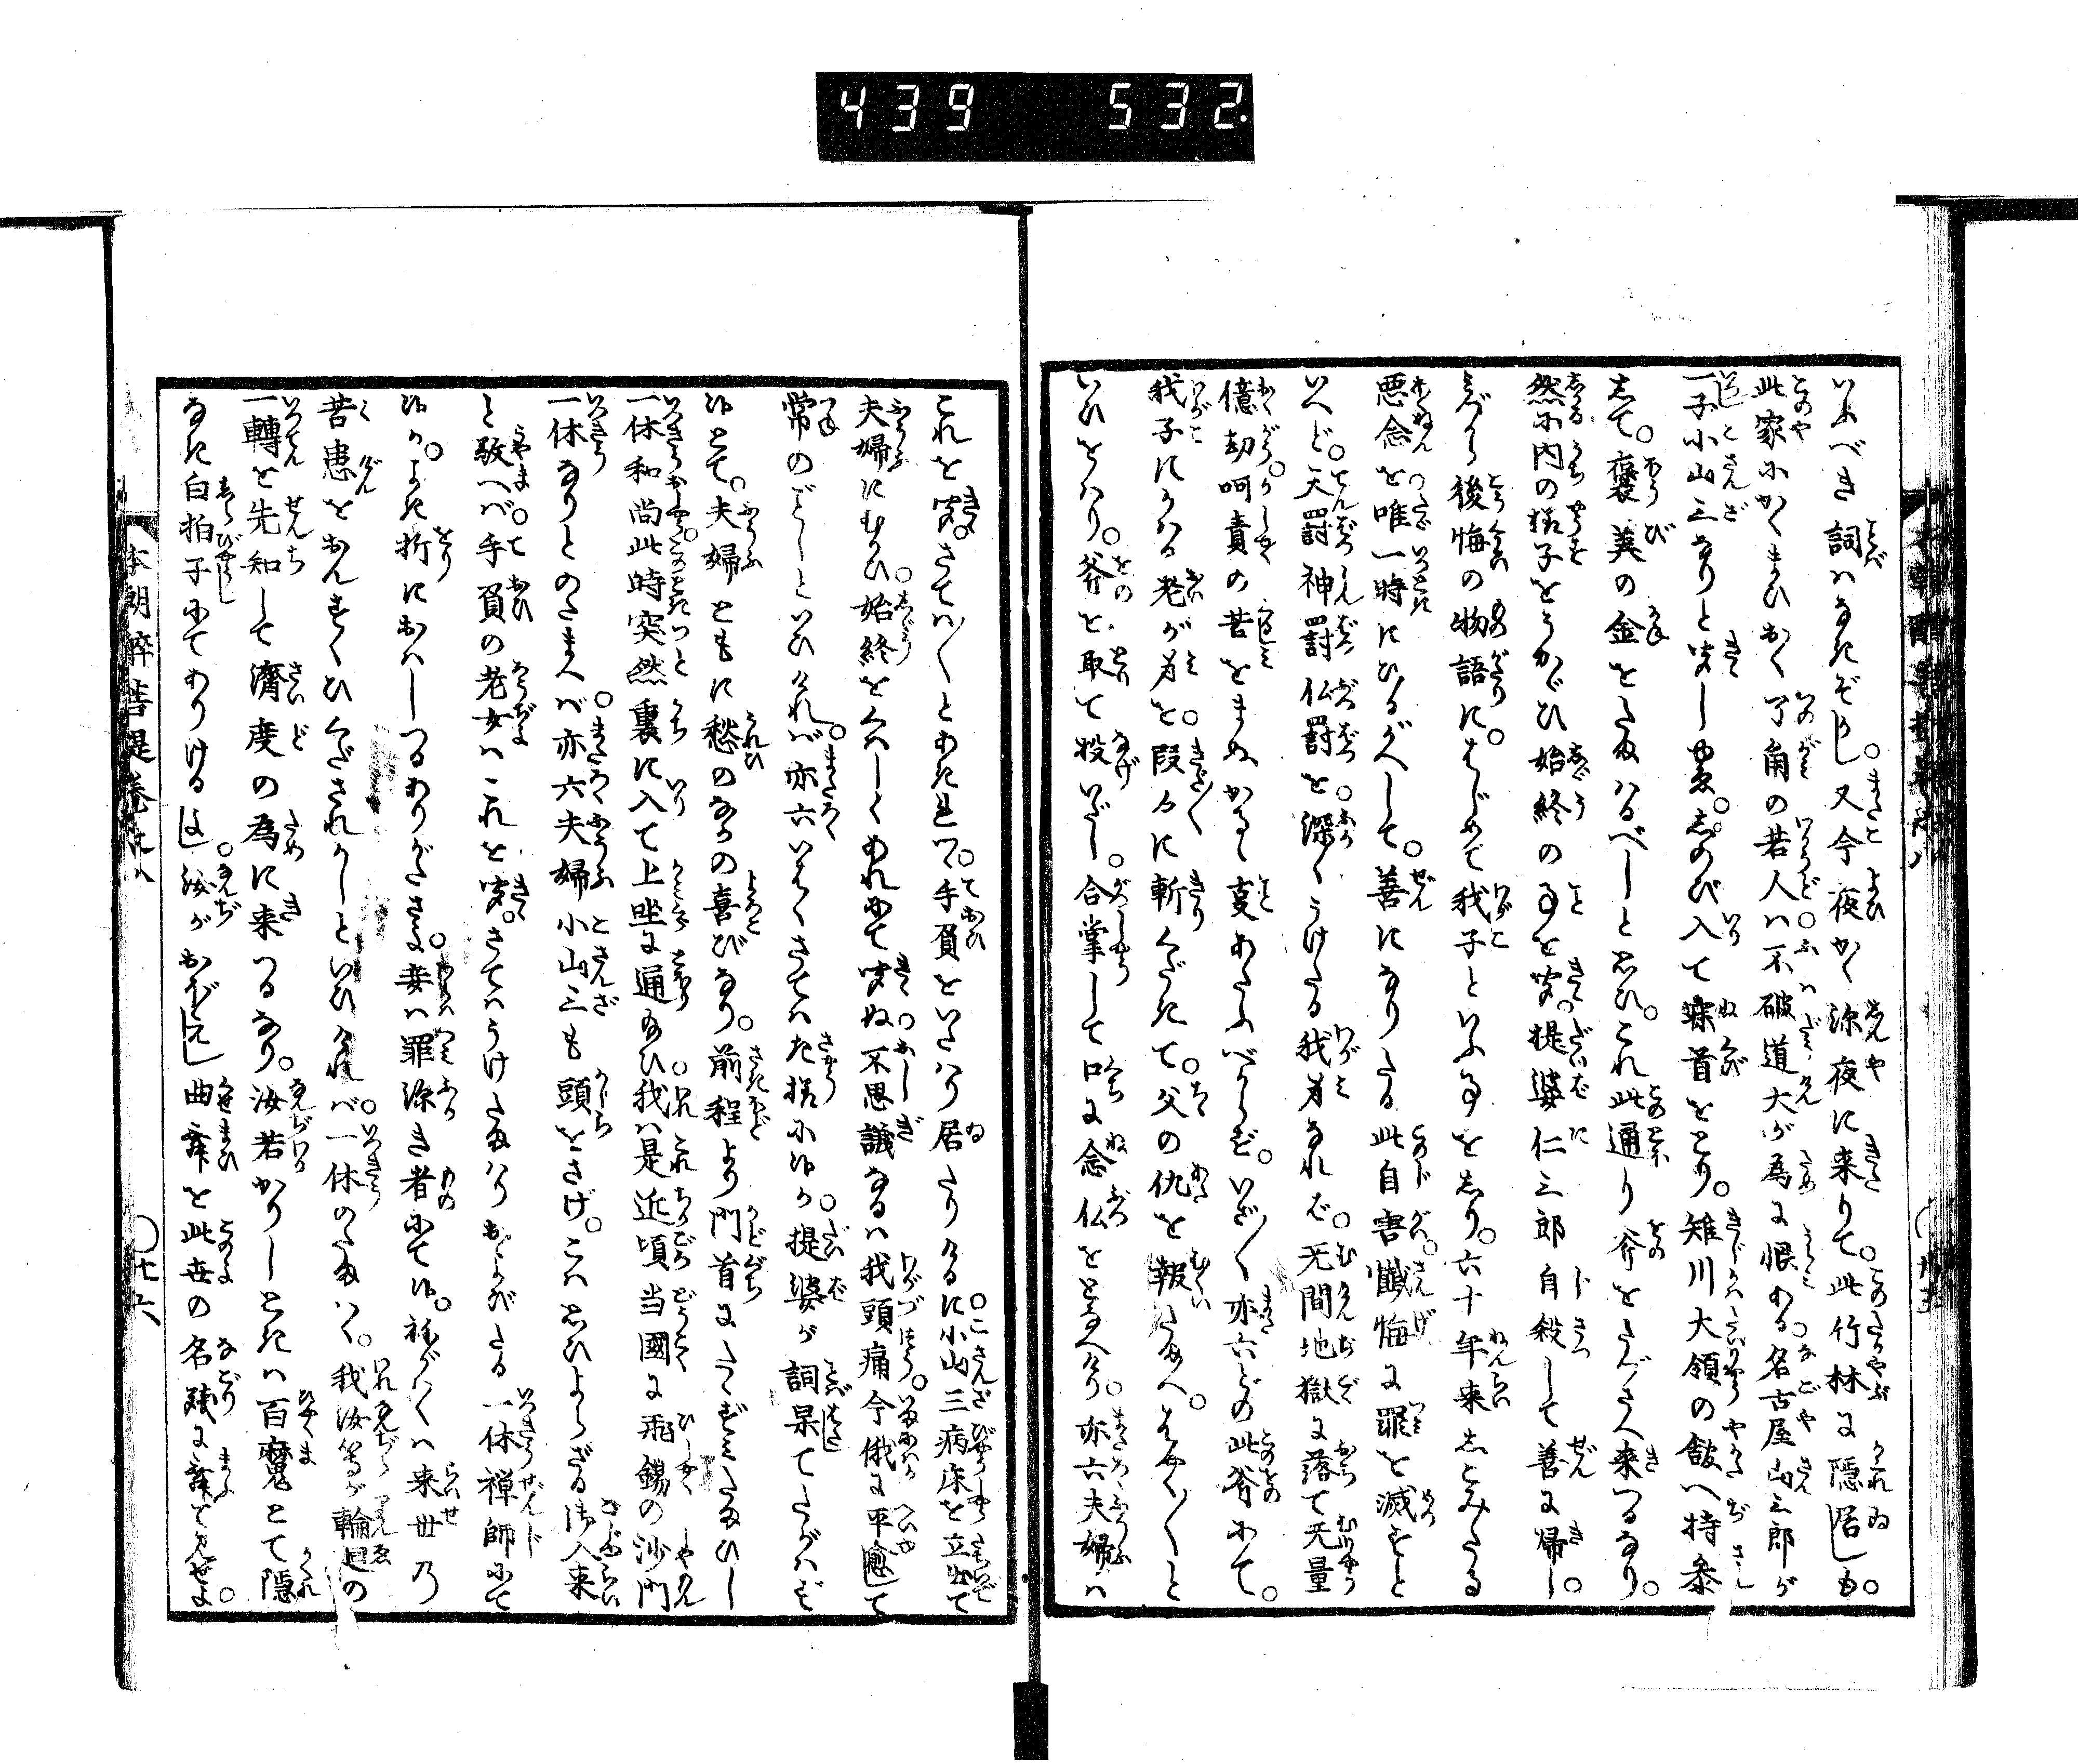 439 532.
いふべき詞はなきぞかし又今夜かく深夜に来りて。此竹林に隠居しも。
此家にかくまひおく丫角の若人は不破道犬が為に恨ある名古屋山三郎が
一子小山三なりと聞しゆゑ。しのび入て寐首をとり。雉川大領の館へ持参
して。褒美の金をたまはるべしと思ひ。これ此通り斧をたづさへ来つるなり。
然に内の様子をうかゞひ始終の事を聞。提婆仁三郎自殺して善に帰し。
後悔の物語に。はじめて我子といふ事をしり。六十年来しこみたる
悪念を唯一時にひるがへして。善になりたる此自害懺悔に罪を滅すと
いへど。天罰神罰仏罰を深くうけたる我身なれば。无間地獄に落て无量
億劫呵責の苦をまぬかるゝ事あたふべからず。いざ〱亦六どの此斧にて。
我子にかはる老が身を。段々に斬くだきて。父の仇を報たまへ。はやく〱と
いひをはり。斧を取て投いだし。合掌して口に念仏をとなへけり。亦六夫婦は
これを聞。さては〱とあきれて。手負をいたはり居たりけるに小山三病床を立出て
夫婦にむかひ始終をくはしくあれにて聞ぬ不思議なるは我頭痛今俄に平愈して
常のごとしといひければ亦六いはくさては左様に候か。提婆が詞果てたがはず
候とて。夫婦ともに愁のなかの喜びなり。前程より門首にたゝずみたまひし
一休和尚此時突然裏に入て上坐に通給ひ我は是近頃当國に飛錫の沙門
一休なりとのたまへば亦六夫婦小山三も頭をさげ。こは思ひよらざる御入来
と敬へば。手負の老女はこれを聞。さてはうけたまはりおよびたる一休禅師にて
候か。よき折におはしつるありがたさよ。妾は罪深き者にて候。ねがはくは来世乃
苦患をおんすくひくだされかしといひければ一休のたまはく。我汝等が輪廻の
一轉を先知して濟度の為に来つるなり。汝若かりしときは百魔とて隠
なき白拍子にてありけるよし汝がおぼえし曲舞を此世の名残に舞ど見せよ。
本朝酔菩提巻之八
〇十六